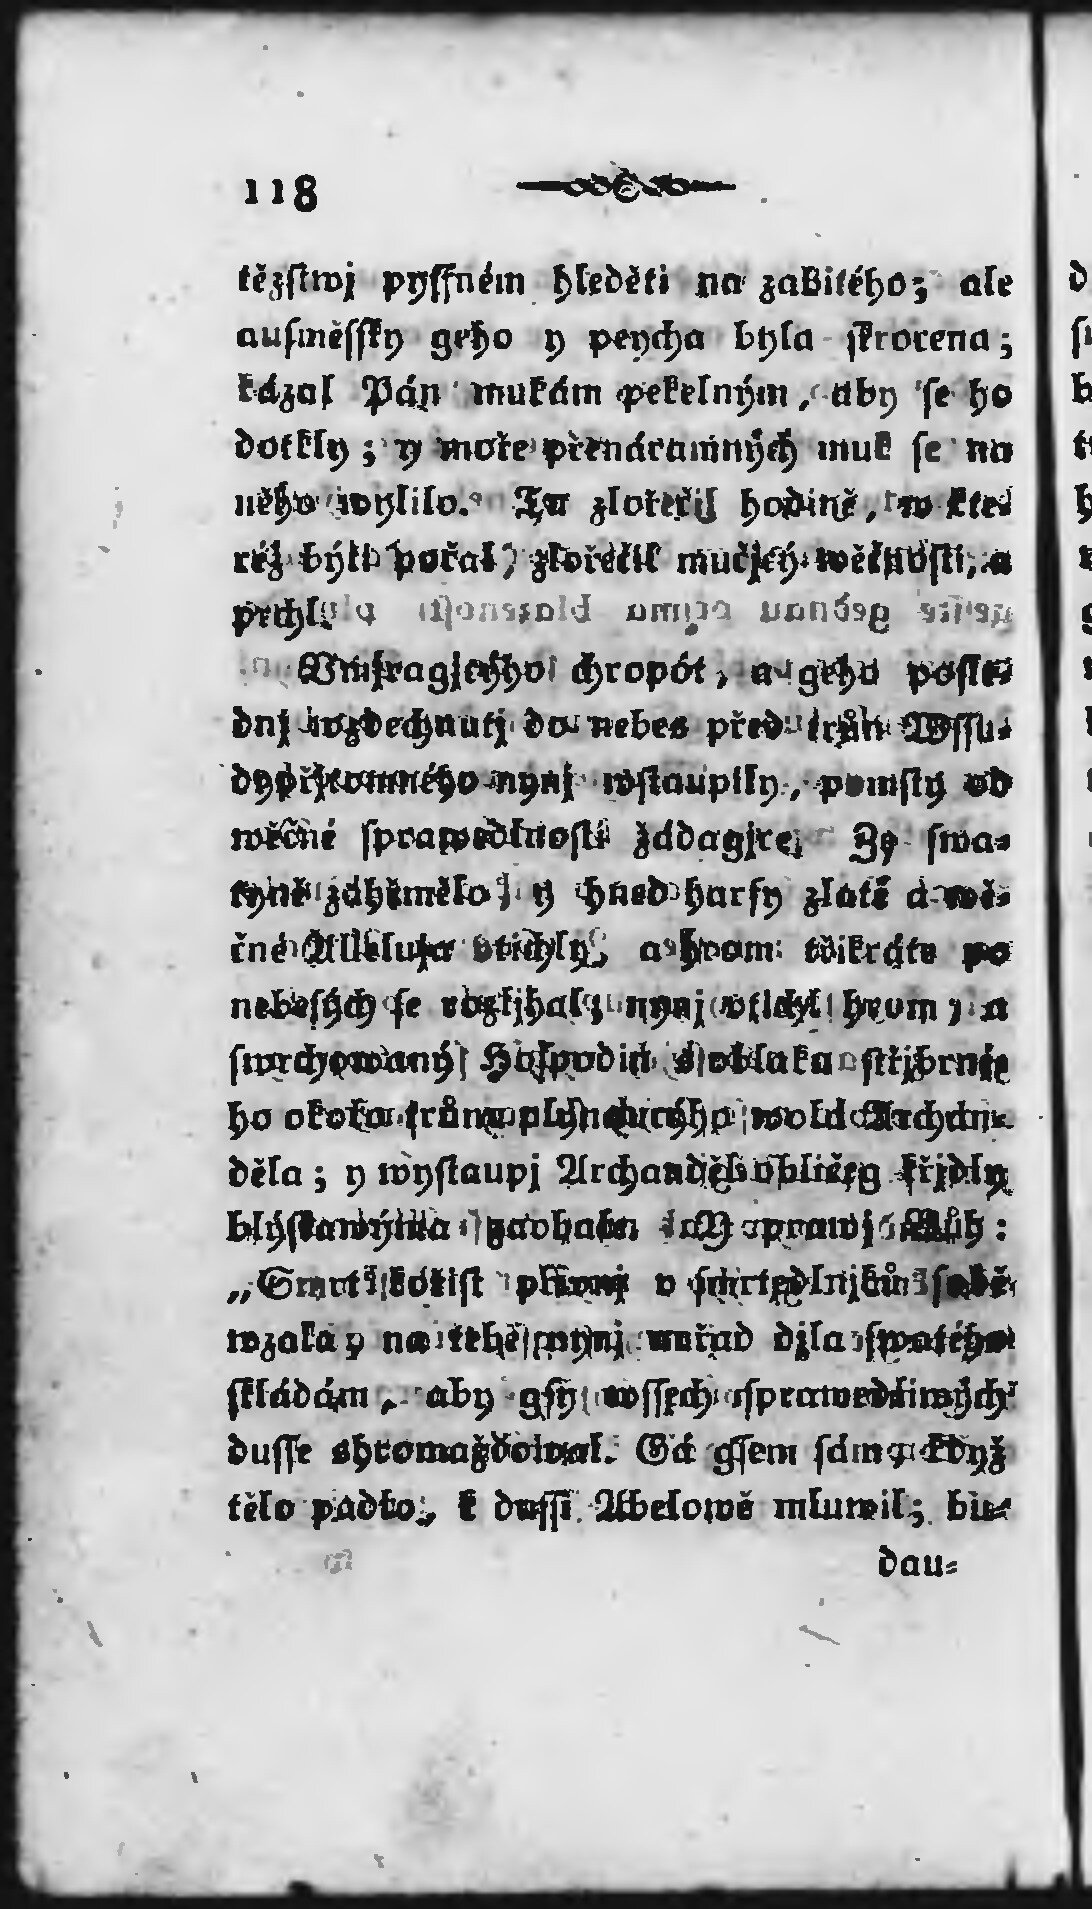 118
tězstwj pyssném hleděti na zabitého; ale
ausměssky geho y peycha byla skrocena;
kázal Pán mukám pekelným, aby se ho
dotkly; y moře přenáramných muk se na
něho wylilo. Tu zlořečil hodině, w kte-
réž býti počal, zlořečil mučjcý wěčnosti, a
prchl.
Vmjragjcýho chropót, a geho posle-
dnj wzdechnutj do nebes před trůn Wssu-
dypřjtomného nynj wstaupily, pomsty od
wěčné sprawedlnosti žádagjce. Ze swa-
tyně zahřmělo, y hned harfy zlaté a wě-
čné Alleluja vtichly, a hrom třikráte po
nebesých se rozljhal; nynj vtichl hrom, a
swrchowaný Hospodin z oblaku střjbrné-
ho okolo trůnu plynaucýho wolá Archan-
děla; y wystaupj Archanděl obličeg křjdly
blýskawýma zaobalen. Y prawj Bůh:
„Smrt kořist prwnj v smrtedlnjků sobě
wzala, na tebe nynj auřad djla swatého
skládám, aby gsy wssech sprawedliwých
dusse shromažďowal. Gá gsem sám, když
tělo padlo, k dussi Abelowě mluwil; bu-
dau-